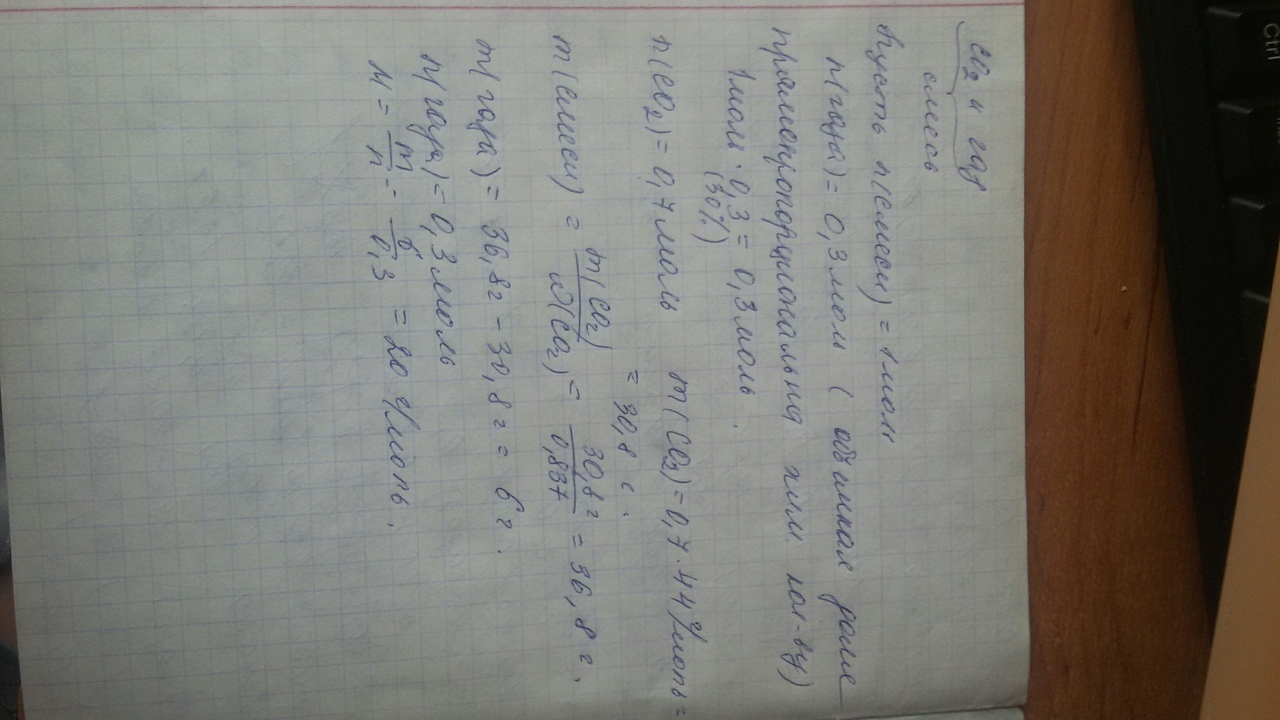 CO₂ и газ
смесь
Пусть n(смеси) = 1 моль
n(газа) = 0,3 моль ( объемная доля
прямопропорциональна хим кол-ву)
1 моль · 0,3 = 0,3 моль.
(30%)
n(CO₂) = 0,7 моль m(CO₂) = 0,7 · 44 г/моль =
= 30,8 г.
m(смеси) = m(CO₂)/ω(CO₂) = 30,8 г/0,837 = 36,8 г.
m(газа) = 36,8 г - 30,8 г = 6 г.
n(газа) = 0,3 моль
M = m/n = 6/0,3 = 20 г/моль.
Ctrl